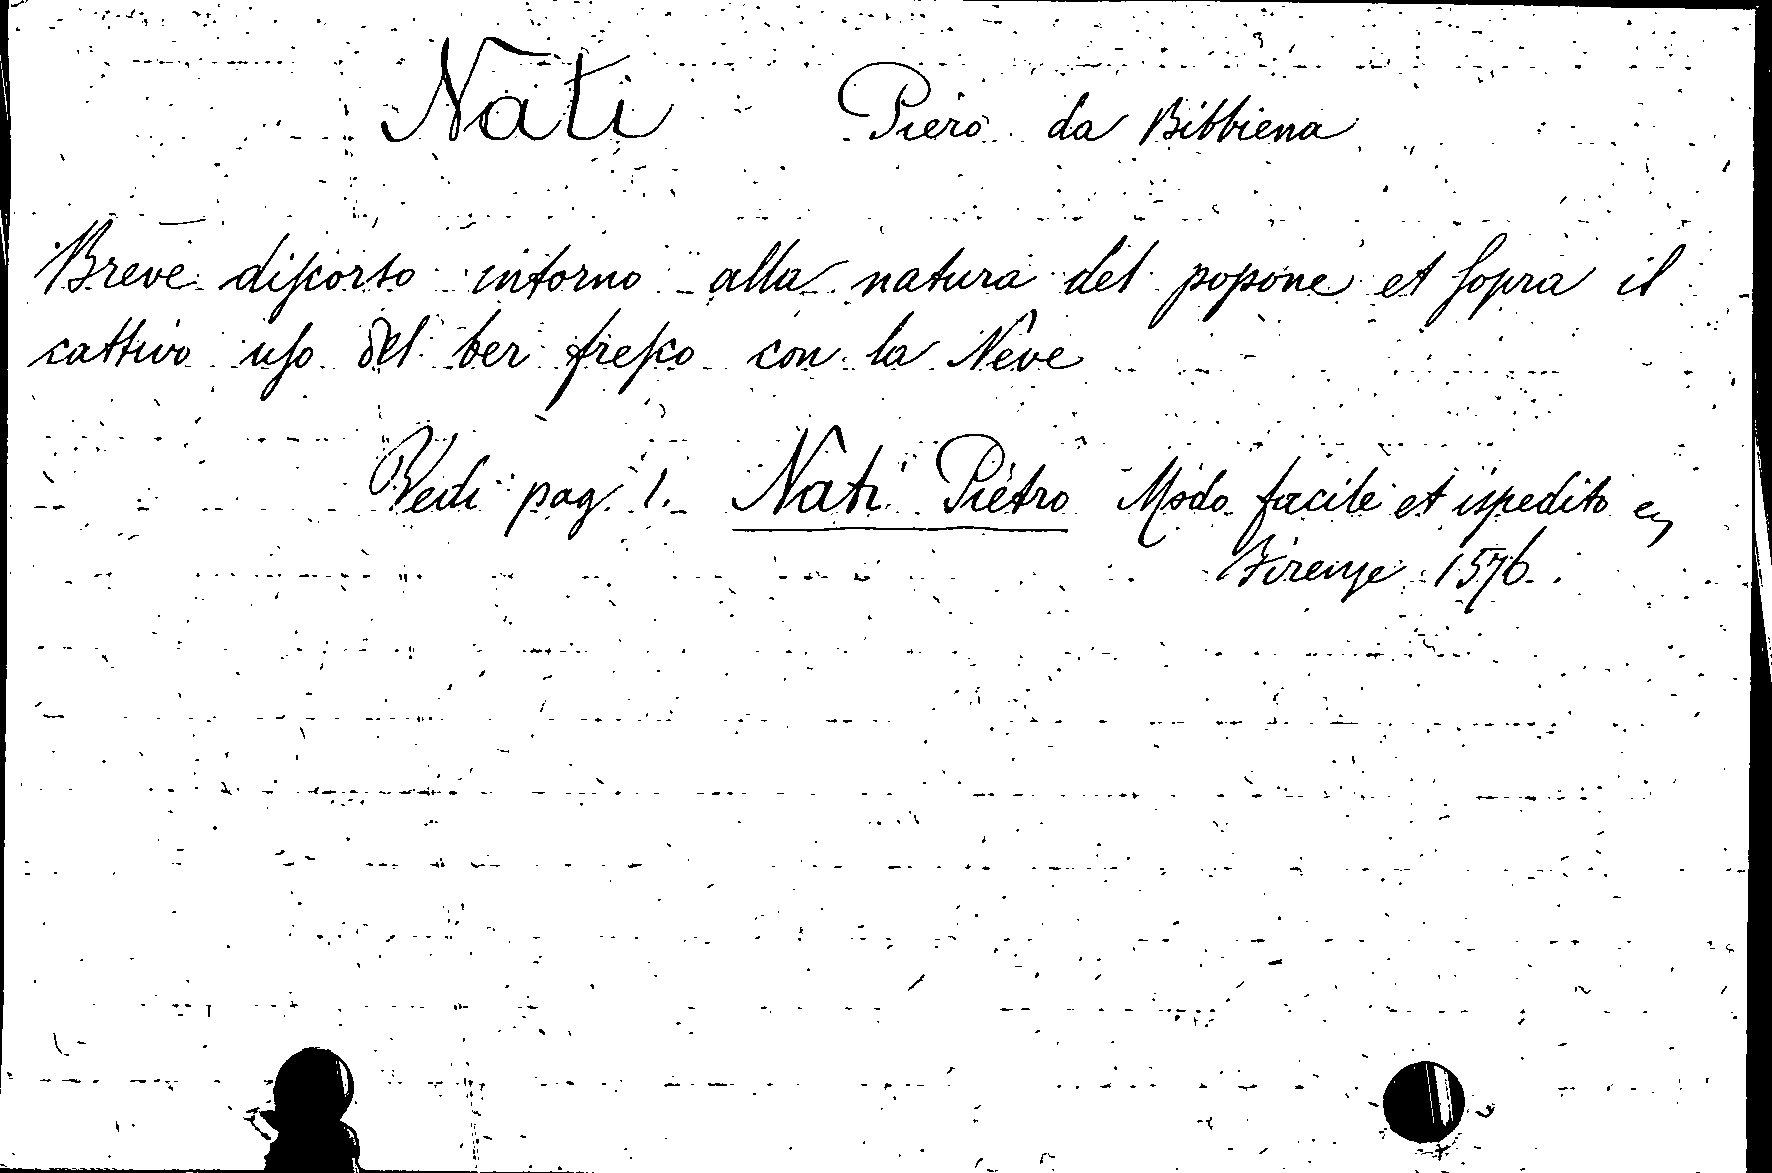 Nati Piero da Bibbiena
Breve diſcorso intorno alla natura del popone et ſopra il
cattivo uſo del ber freſco con la Neve
Vedi pag. 1. Nati Pietro Modo facile et ispedito
Firenze 1576.